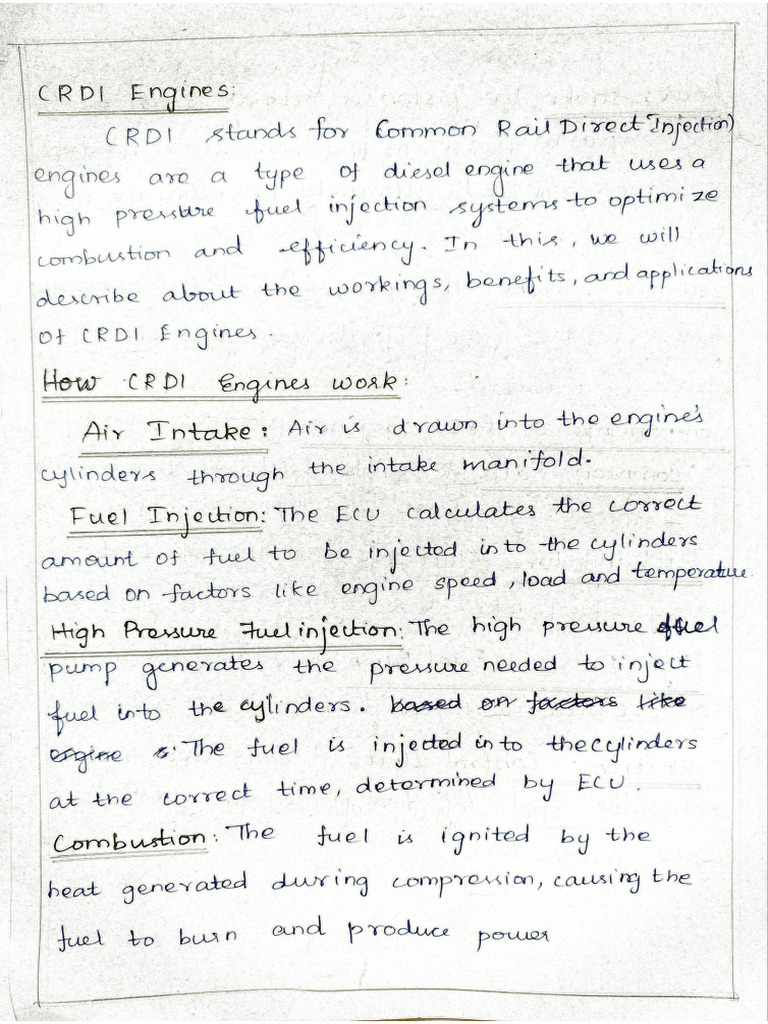 CRDI Engines:
CRDI stands for Common Rail Direct Injection)
engines are a type of diesel engine that uses a
high pressure fuel injection systems to optimize
combustion and efficiency. In this, we will
describe about the workings, benefits, and applications
of CRDI Engines.
How CRDI Engines work:
Air Intake: Air is drawn into the engine's
cylinders through the intake manifold.
Fuel Injection: The ECU calculates the correct
amount of fuel to be injected into the cylinders
based on factors like engine speed, load and temperature.
High Pressure Fuel injection: The high pressure fuel
pump generates the pressure needed to inject
fuel into the cylinders. based on factors like
engine s. The fuel is injected into the cylinders
at the correct time, determined by ECU.
Combustion: The fuel is ignited by the
heat generated during compression, causing the
fuel to burn and produce power